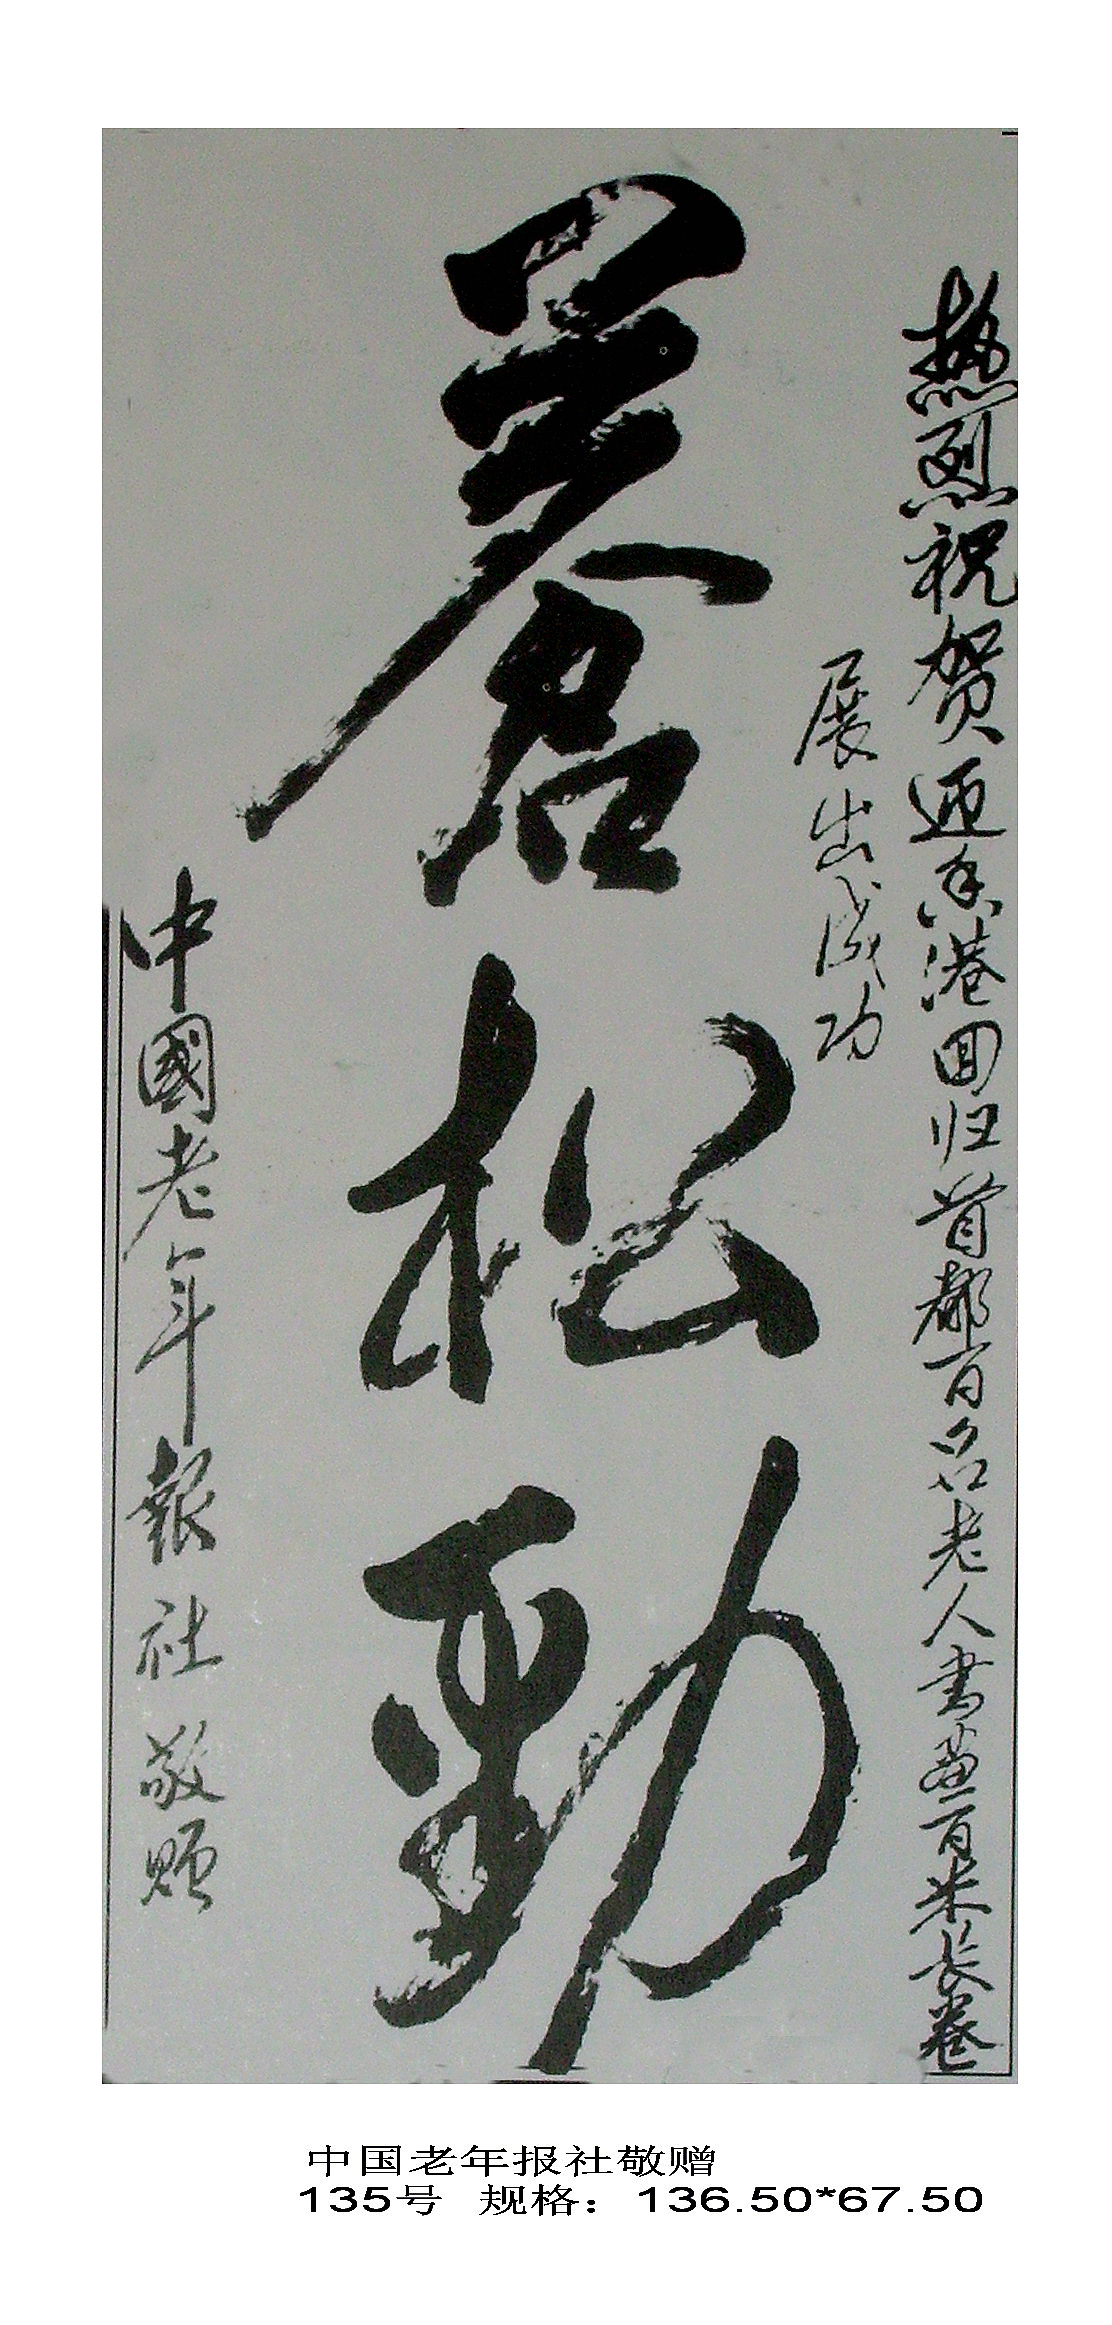 热烈祝贺迎香港回归首都百名老人書畫百米长卷
展出成功
蒼松勁
中國老年報社敬赠
中国老年报社敬赠
135号 规格：136.50*67.50